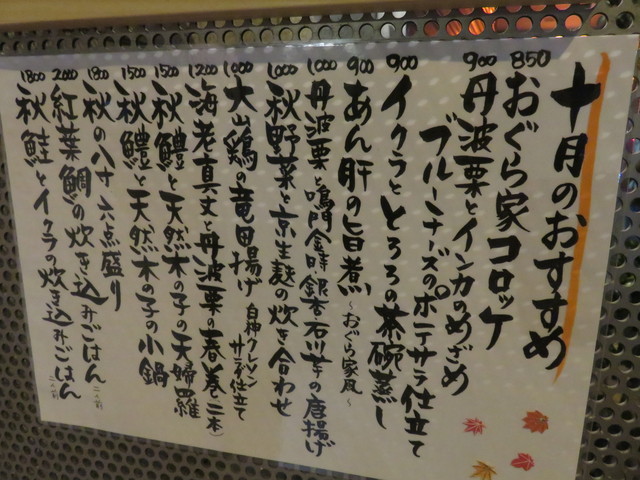 十月のおすすめ
850
おぐら家コロッケ
900
丹波栗とインカのめざめ
ブルーチーズのポテサラ仕立て
900
イクラととろろの茶碗蒸し
900
あん肝の旨煮 ~おぐら家風~
1000
丹波栗と鳴門金時、銀杏、石川芋の唐揚げ
1000
秋野菜と京生麩の炊き合わせ
1000
大山鶏の竜田揚げ 白神クレソン
サラダ仕立て
1200
海老真丈と丹波栗の春巻(二本)
1500
秋鱧と天然木の子の天婦羅
1500
秋鱧と天然木の子の小鍋
1800
秋の八寸 六点盛り
2000
紅葉鯛の炊き込みごはん
1800
秋鮭とイクラの炊き込みごはん